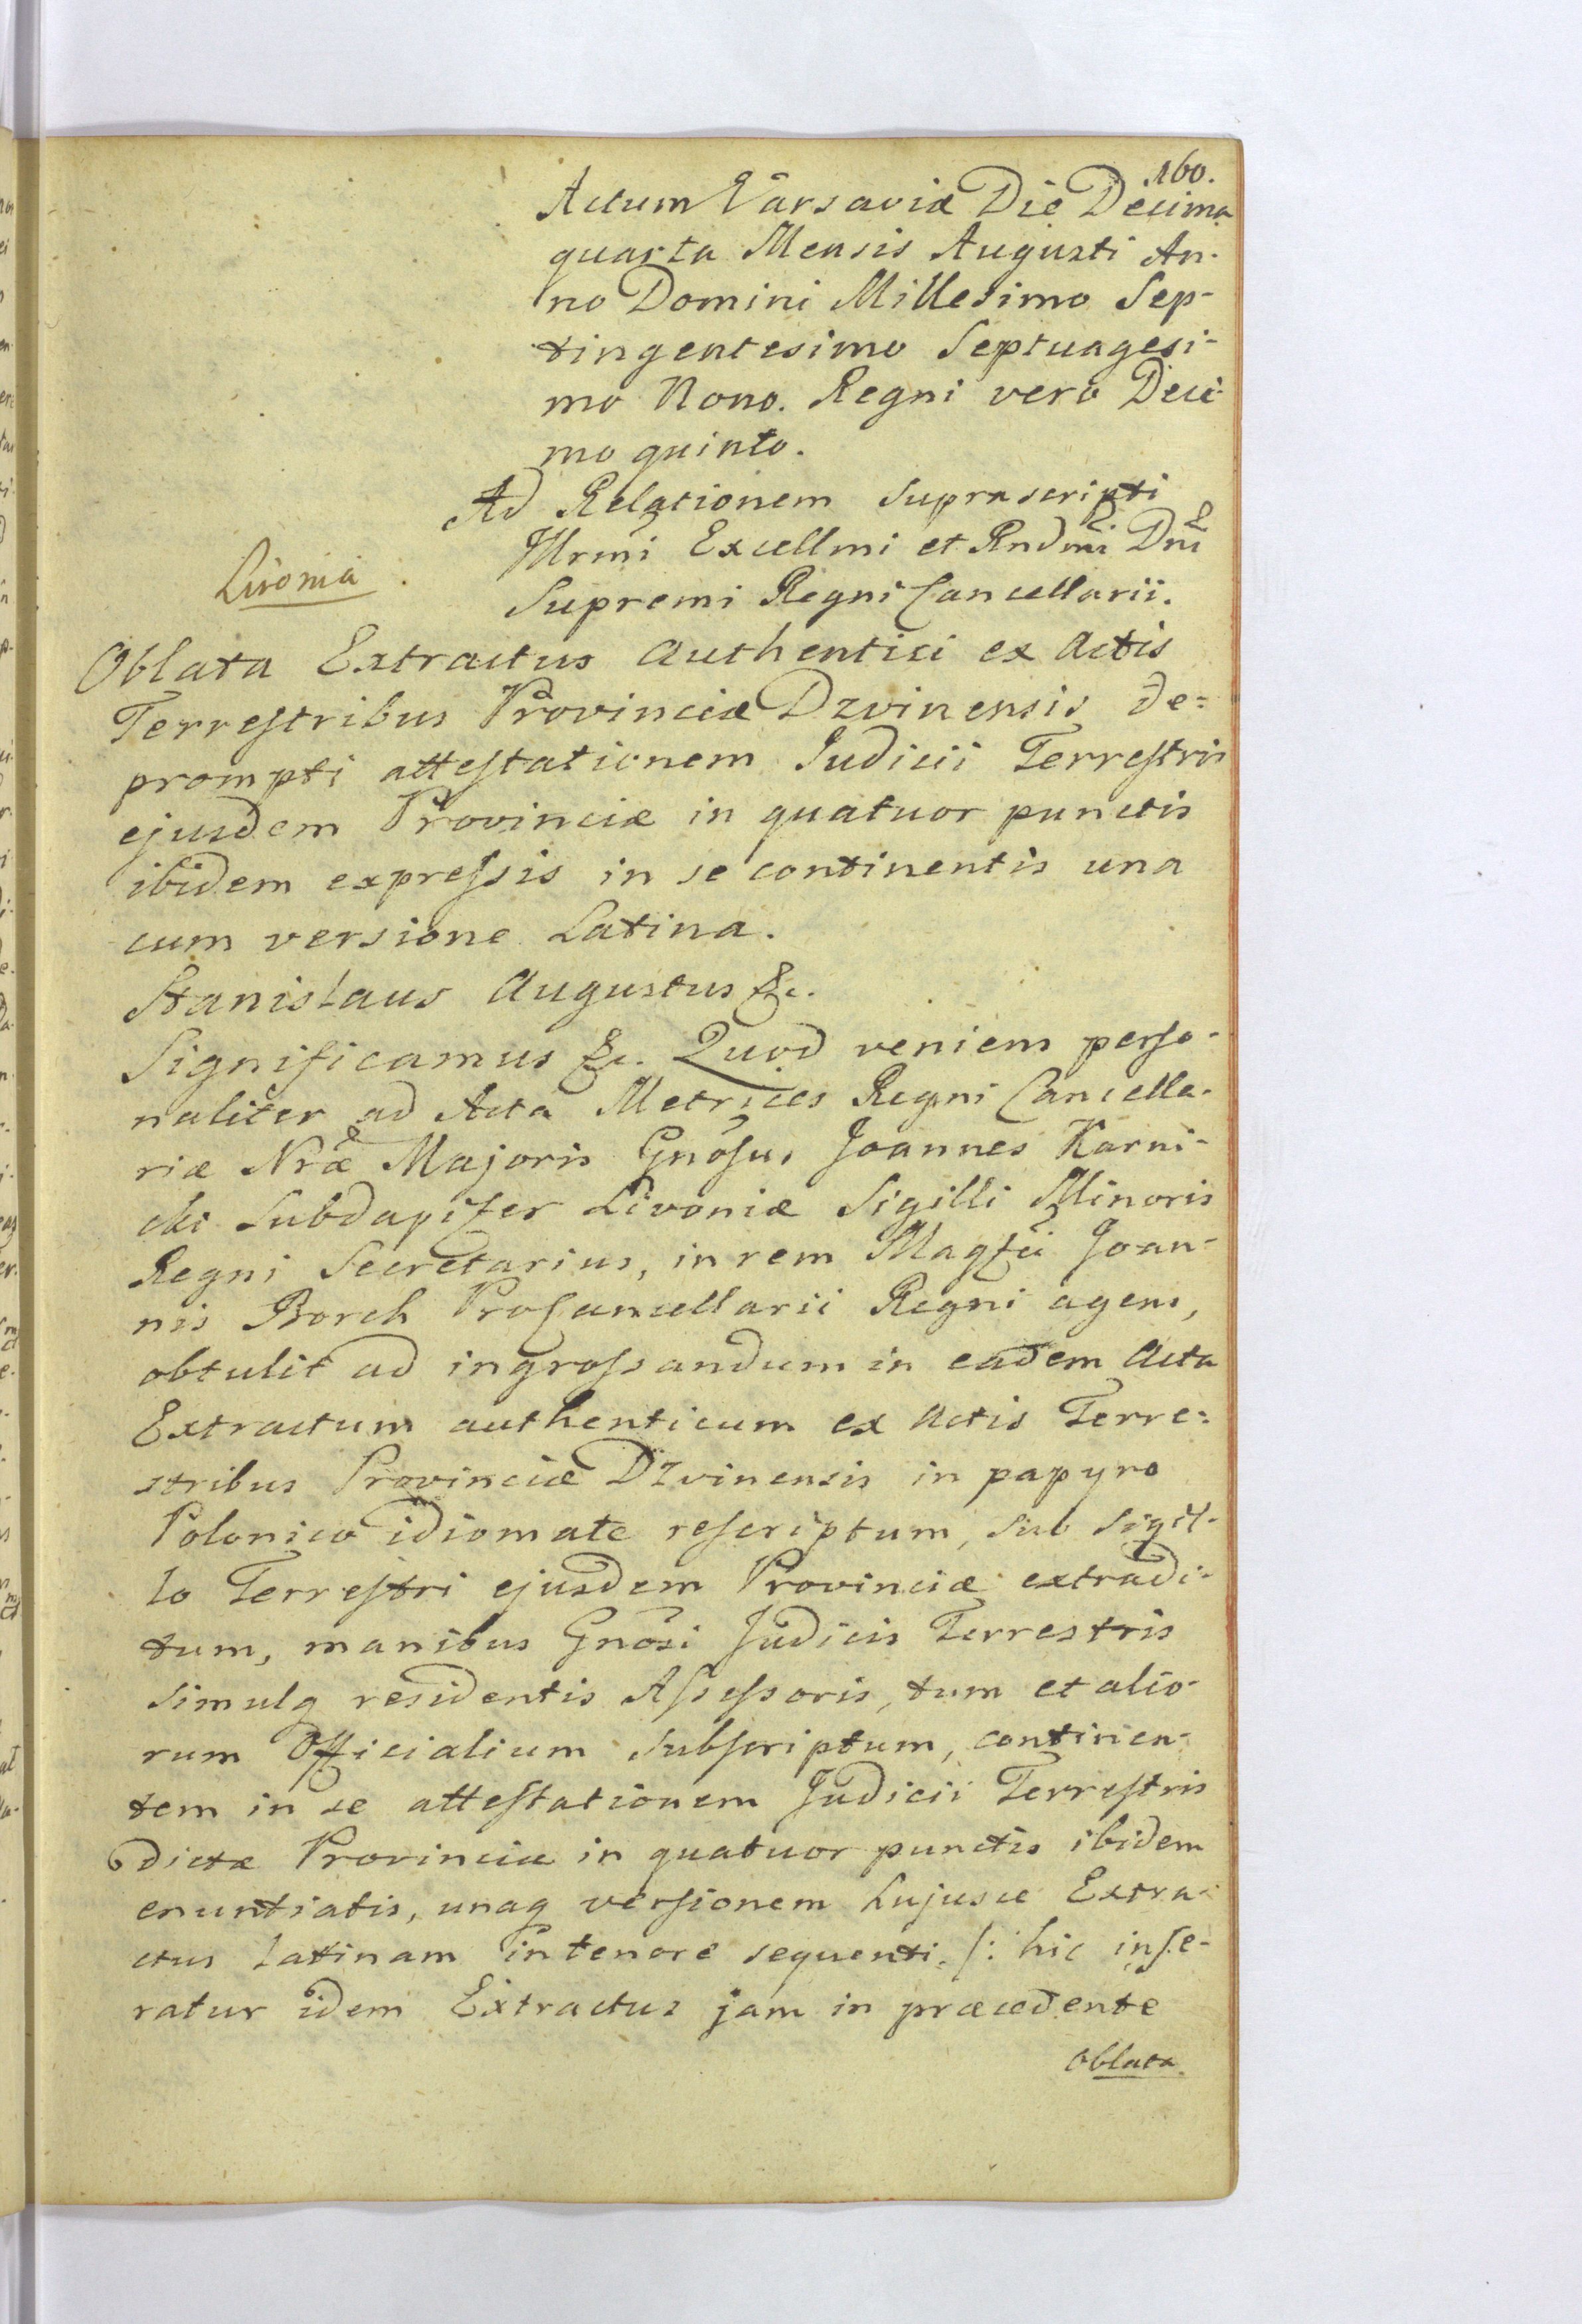 160.
Actum Varsaviæ Die Decima
quarta Mensis Augusti An-
no Domini Millesimo Sep-
tingentesimo Septuagesi-
mo Nono. Regni vero Deci-
mo quinto.
Ad Relationem suprascripti
Illrmi Excellmi et Rndmi Dni
Supremi Regni Cancellarii.
Livonia
Oblata Extractus Authentici ex Actis
Terrestribus Provinciæ Dzvinensis de=
prompti attestationem Judicii Terrestris
ejusdem Provinciæ in quatuor punctis
ibidem expressis in se continentis una
cum versione Latina.
Stanislaus Augustus &c.
Significamus &c. Quod veniens perso-
naliter ad Acta Metrices Regni Cancella-
riæ Nræ Majoris Gnosus Joannes Karni-
cki Subdapifer Livoniæ Sigilli Minoris
Regni Secretarius, in rem Magfci Joan-
nis Borch ProCancellarii Regni agens,
obtulit ad ingrossandum in eadem Acta
Extractum authenticum ex Actis Terre=
stribus Provinciæ Dzvinensis in papyro
Polonico idiomate rescriptum, sub Sigil-
lo Terrestri ejusdem Provinciæ extradi-
tum, manibus Gnosi Judicis Terrestris
simulq residentis Assessoris, tum et alio-
rum Officialium subscriptum, continen-
tem in se attestationem Judicii Terrestris
dictæ Provinciæ in quatuor punctis ibidem
enuntiatis, unaq versionem hujusce Extra-
ctus Latinam in tenore sequenti. /: hic inse-
ratur idem Extractus jam in præcedente
Oblata